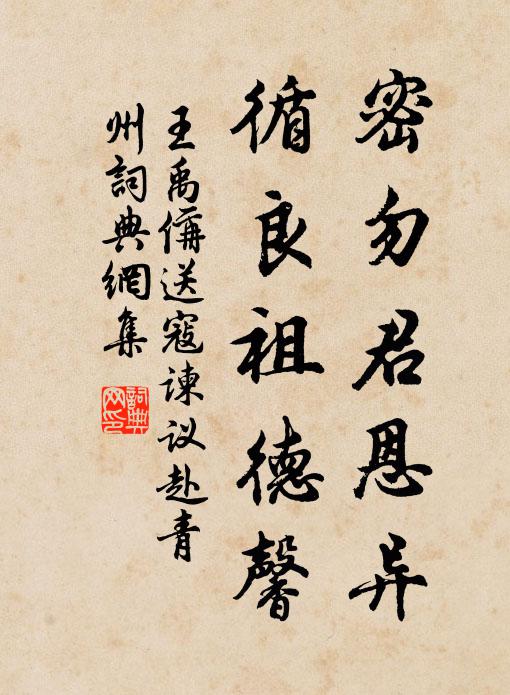 密勿君恩异
循良祖德馨
王禹偁送寇谏议赴青
州詞典網集
詞典网印